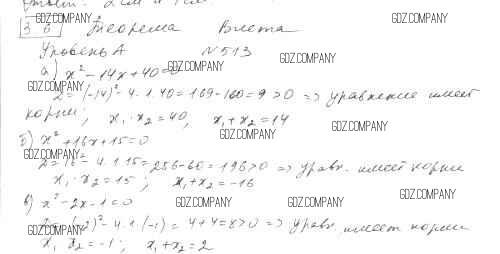 36 Теорема Виета
Уровень А N 513
а) x² - 14x + 40 = 0
D = (-14)² - 4·1·40 = 169 - 160 = 9 > 0 => уравнение имеет
корни; x₁·x₂ = 40, x₁ + x₂ = 14
б) x² + 16x + 15 = 0
D = 16² - 4·1·15 = 256 - 60 = 196 > 0 => уравн. имеет корни
x₁·x₂ = 15; x₁ + x₂ = -16
в) x² - 2x - 1 = 0
D = (-2)² - 4·1·(-1) = 4 + 4 = 8 > 0 => уравн. имеет корни
x₁ x₂ = -1; x₁ + x₂ = 2
GDZ.COMPANY
GDZ.COMPANY
GDZ.COMPANY
GDZ.COMPANY
GDZ.COMPANY
GDZ.COMPANY
GDZ.COMPANY
GDZ.COMPANY
GDZ.COMPANY
GDZ.COMPANY
GDZ.COMPANY
GDZ.COMPANY
GDZ.COMPANY
GDZ.COMPANY